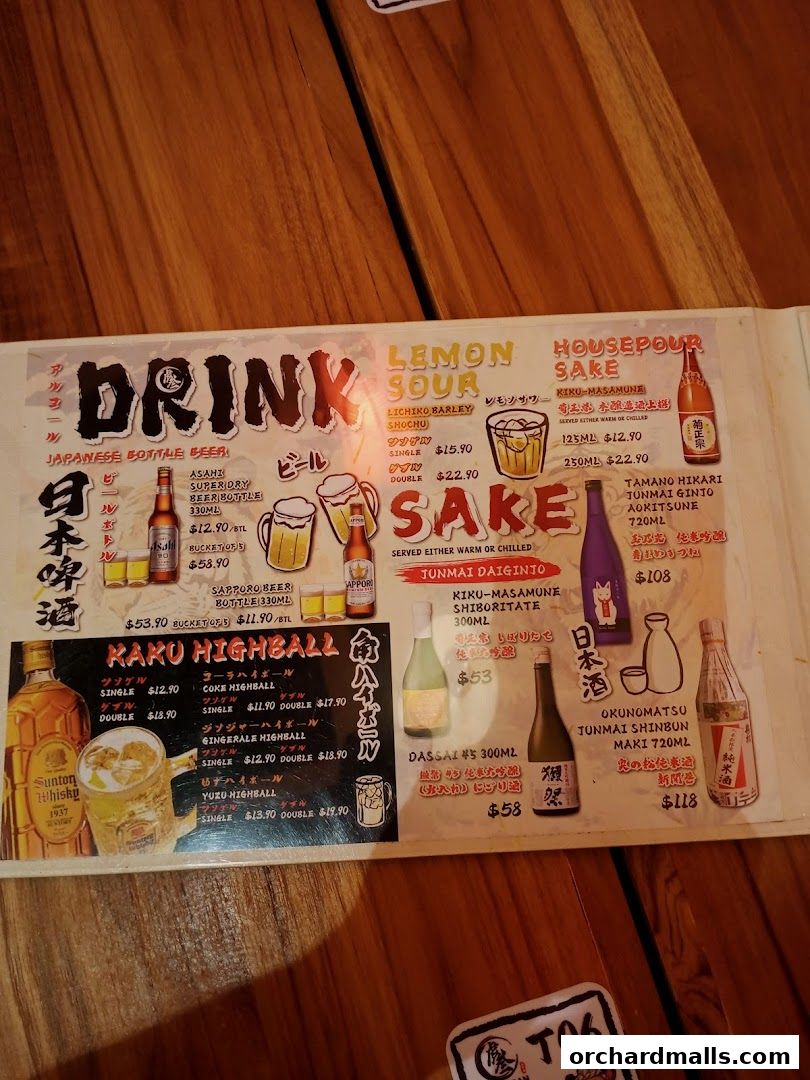 アルコール
DRINK
JAPANESE BOTTLE BEER
日本啤酒
ビールボトル
ASAHI
SUPER DRY
BEER BOTTLE
330ML
$12.90/BTL
BUCKET OF 5
$58.90
ビール
Asahi
SAPPORO
SAPPORO BEER
BOTTLE 330ML
$53.90 BUCKET OF 5 $11.90/BTL
KAKU HIGHBALL
角ハイボール
SINGLE $12.90
DOUBLE $18.90
コーラハイボール
COKE HIGHBALL
SINGLE $11.90 DOUBLE $17.90
ジンジャーハイボール
GINGERALE HIGHBALL
SINGLE $12.90 DOUBLE $18.90
ゆずハイボール
YUZU HIGHBALL
SINGLE $13.90 DOUBLE $19.90
Suntory
Whisky
1937
LEMON
SOUR
レモンサワー
LICHIKO BARLEY
SHOCHU
SINGLE $15.90
DOUBLE $22.90
HOUSEPOUR
SAKE
KIKU-MASAMUNE
菊正宗 本醸造酒上撰
SERVED EITHER WARM OR CHILLED
125ML $12.90
250ML $22.90
菊正宗
SAKE
SERVED EITHER WARM OR CHILLED
JUNMAI DAIGINJO
KIKU-MASAMUNE
SHIBORITATE
300ML
菊正宗 しぼりたて
純米大吟醸
$53
DASSAI 45 300ML
獺祭 45 純米大吟醸
にごり酒
$58
獺祭
TAMANO HIKARI
JUNMAI GINJO
AOKITSUNE
720ML
玉乃光 純米吟醸
$108
日本酒
OKUNOMATSU
JUNMAI SHINBUN
MAKI 720ML
奥の松純米酒
新聞巻
$118
純米酒
T06
orchardmalls.com